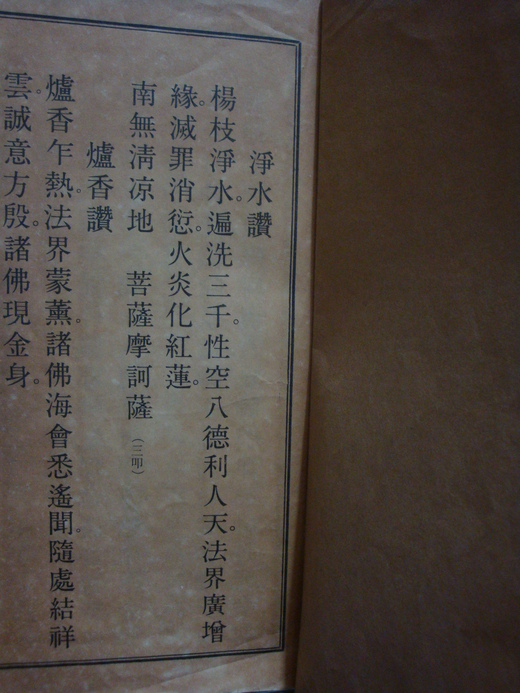 淨水讚
楊枝淨水。遍洗三千。性空八德利人天。法界廣增
緣。滅罪消愆。火炎化紅蓮。
南無清凉地　菩薩摩訶薩（三叩）
爐香讚
爐香乍熱。法界蒙薰。諸佛海會悉遙聞。隨處結祥
雲。誠意方殷。諸佛現金身。